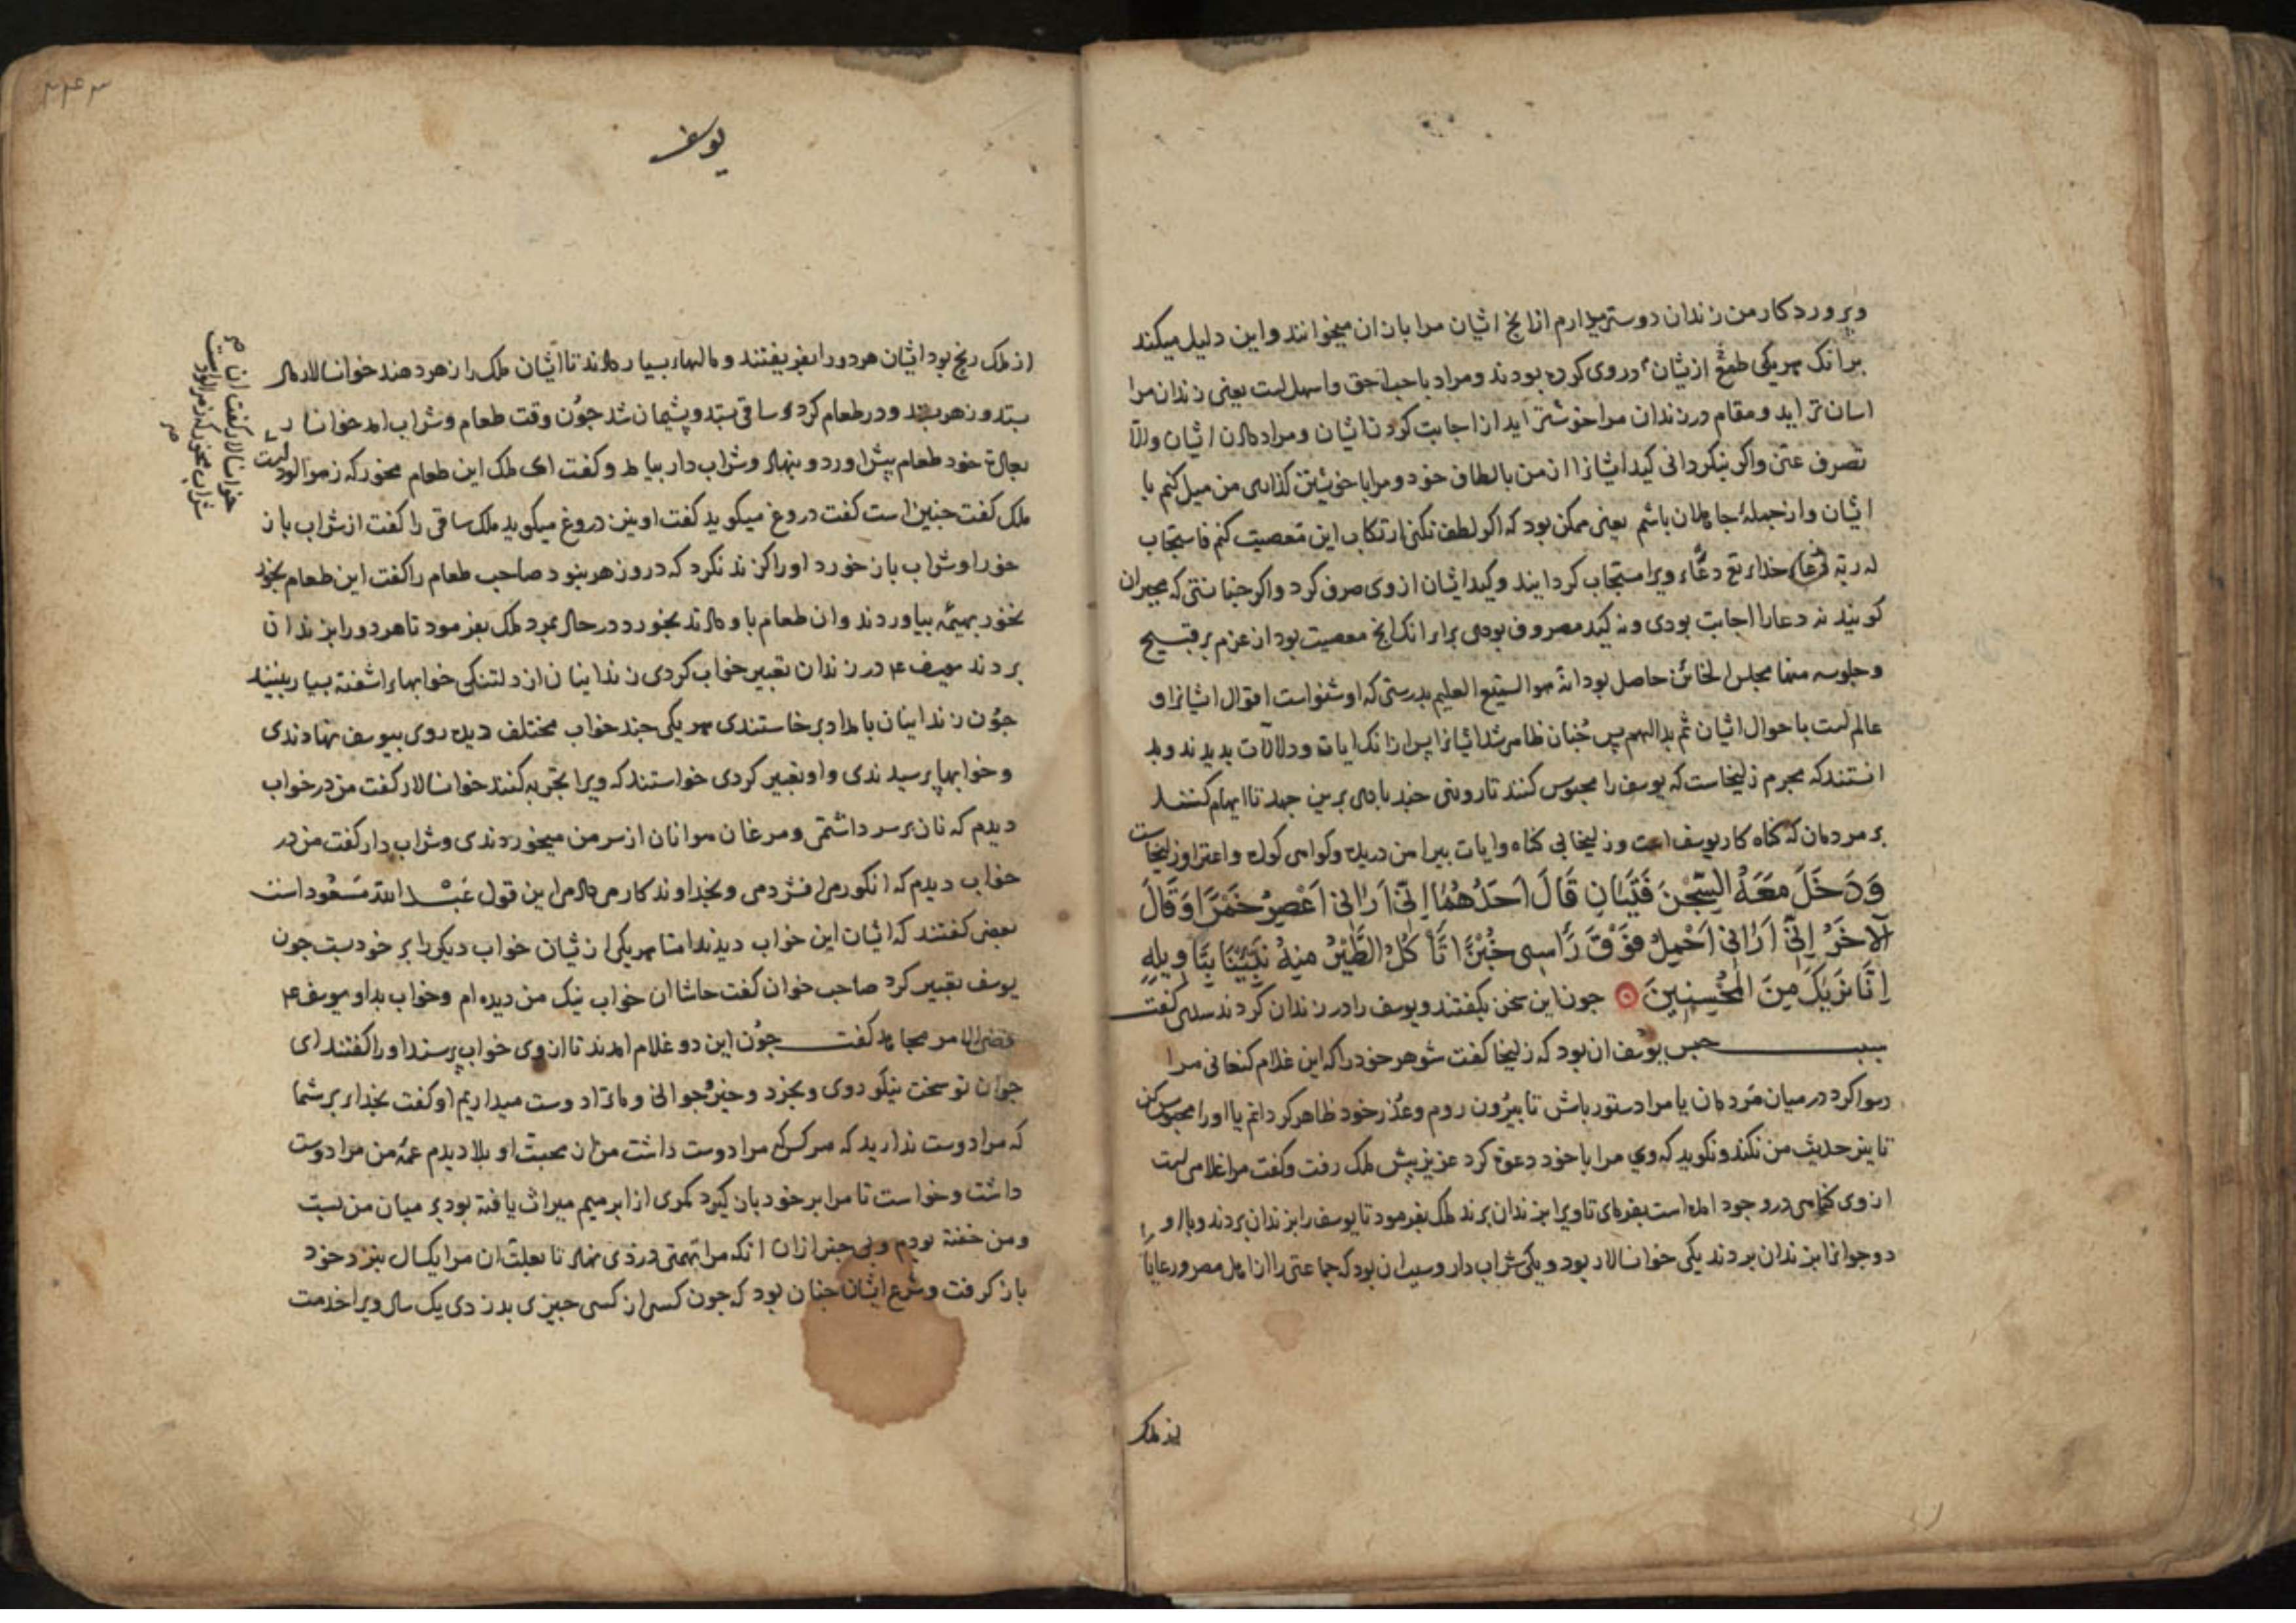 وپروردکار من زندان دوستر میدارم از انج ایشان مرا بازان میخوانند واین دلیل میکند
برانک هریکی طمع ازیشان در وی کرده بودند ومراد باحب احق واسهل است یعنی زندان مرا
اسان تر اید ومقام در زندان مرا خوشتر اید از اجابت کردن ایشان ومراد ایشان والا
تصرف عنی واکر بنکردانی کید ایشانرا از من بالطاف خود ومرا با خویشتن کذاری من میل کنم با
ایشان واز جملهٔ جاهلان باشم یعنی ممکن بود که اکر لطف نکنی ارتکاب این معصیت کنم فاستجاب
له ربه خدای تع دعاء ویرا مستجاب کردانید وکید ایشان از وی صرف کرد واکر جنانستی که مجبران
کویند نه دعا را اجابت بودی ونه کید مصروف بودی برای انک انج معصیت بود از عزم بر قبیح
وجلوسه منها مجلس الخائن حاصل بود انه هو السمیع العلیم بدرستی که او شنواست اقوال ایشانرا و
عالم است باحوال ایشان ثم بدا لهم پس جنان ظاهر شد ایشانرا پس ازانک ایات ودلالات بدیدند وبد
انستند که مجرم زلیخاست که یوسف را محبوس کنند تا روزی جند برین جهد تا ایهام کنند
بر مردمان که کناه کار یوسف است وزلیخا بی کناه وایات پیراهن دریده وکواهی کودک واعتراف زلیخاست
وَدَخَلَ مَعَهُ السِّجْنَ فَتَيَانِ قَالَ اَحَدُهُمَا اِنِّي اَرَانِي اَعْصِرُ خَمْرًا وَقَالَ
الآخَرُ اِنِّي اَرَانِي اَحْمِلُ فَوْقَ رَأسِي خُبْزًا تَأكُلُ الطَّيْرُ مِنْهُ نَبِّئْنَا بِتَأوِيلِهِ
اِنَّا نَرَيكَ مِنَ المُحْسِنِينَ جون این سخن بکفتند ویوسف را در زندان کردند سدی کفت
سبب حبس یوسف ان بود که زلیخا کفت شوهر خود را که این غلام کنعانی مرا
رسوا کرد در میان مردمان یا مرا دستور باش تا بیرون روم وعذر خود ظاهر کردانم یا اورا محبوس کن
تا نیز حدیث من نکند ونکوید که وی مرا با خود دعوة کرد عزیز پیش ملک رفت وکفت مرا غلامی است
از وی کناهی در وجود امده است بفرمای تا ویرا بزندان برند ملک بفرمود تا یوسف را بزندان بردند وبا او
دو جوانرا بزندان بردند یکی خوانسالار بود ویکی شراب دار وسبب ان بود که جماعتی را از اهل مصر ورعایا را
از ملک
یوسف
از ملک رنج بود ایشان هردو را بفریفتند ومالهاء بسیار دادند تا ایشان ملک را زهر دهند خوانسالار مال
بستد وزهر بستد ودر طعام کرد وساقی بستد وپشیمان شد جون وقت طعام وشراب امد خوانسالار
بعادة خود طعام پیش اورد وبنهاد وشراب دار بیامد وکفت ای ملک این طعام مخور که زهرالود است
خوانسالار کفت ان
شراب مخور که زهرالود است
ملک کفت جنین است کفت دروغ میکوید کفت او نیز دروغ میکوید ملک ساقی را کفت از شراب باز
خور او شراب باز خورد اورا کزند نکرد که درو زهر نبود صاحب طعام را کفت این طعام بخور
نخورد بهیمه بیاوردند وان طعام باو دادند بخورد در حال بمرد ملک بفرمود تا هردو را بزندان
بردند یوسف ع در زندان تعبیر خواب کردی زندانیان از دلتنکی خوابهاء اشفته بسیار بینند
جون زندانیان بامداد برخاستندی هریکی جند خواب مختلف دیده روی بیوسف نهادندی
وخوابها پرسیدندی واو تعبیر کردی خواستند که ویرا تجربه کنند خوانسالار کفت من در خواب
دیدم که نان بر سر داشتمی ومرغان هوا نان از سر من میخوردندی وشراب دار کفت من در
خواب دیدم که انکور می افشردمی وبخداوند کار می دادمی این قول عبد الله مسعود است
بعضی کفتند که ایشان این خواب دیدند اما هریکی ازیشان خواب دیکری بر خود بست جون
یوسف تعبیر کرد صاحب خوان کفت حاشا ان خواب نیک من دیده ام وخواب بد او یوسف ع
مجاهد کفت جون این دو غلام امدند تا ازوی خواب پرسند اورا کفتند ای
جوان تو سخت نیکو روی وبخرد وما ترا دوست میداریم او کفت بخدای بر شما
که مرا دوست ندارید که هر کس که مرا دوست داشت من از محبت او بلا دیدم عمهٔ من مرا دوست
داشت وخواست تا مرا بر خود باز کیرد کمری از ابرهیم میراث یافته بود بر میان من بست
ومن خفته بودم وبی خبر ازان انکه مرا تهمتی دزدی نهاد تا بعلت ان مرا یکسال بنزد خود
باز کرفت وشرع ایشان جنان بود که جون کسی از کسی جیزی بدزدی یک سال ویرا خدمت